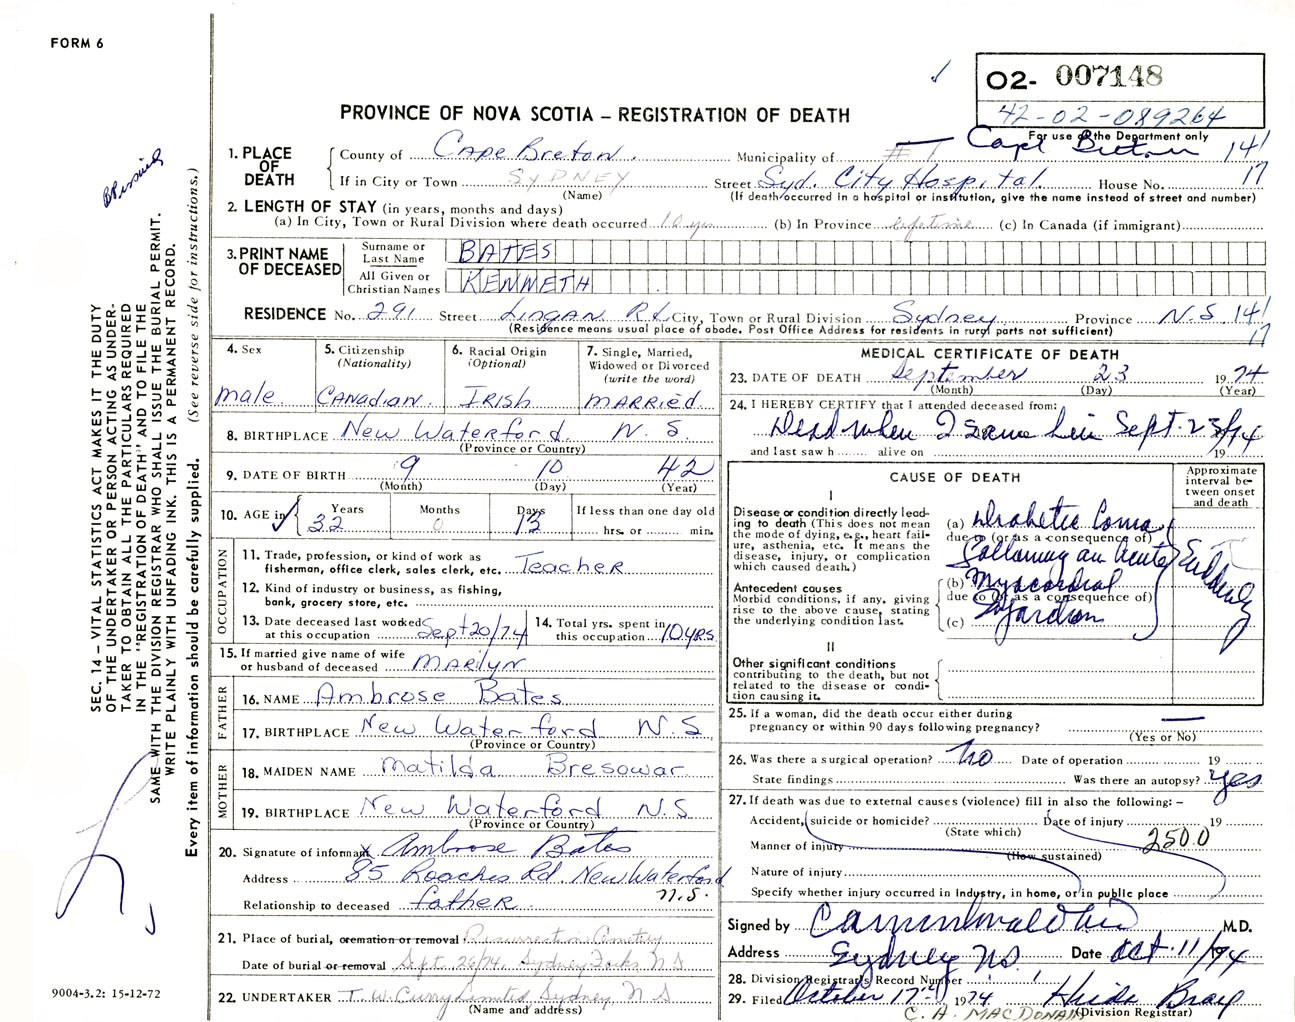 FORM 6
02- 007148
42-02-089264
For use of the Department only
PROVINCE OF NOVA SCOTIA – REGISTRATION OF DEATH
1. PLACE OF DEATH County of Cape Breton. Municipality of #1 Cape Breton 14/17
If in City or Town SYDNEY (Name) Street Syd. City Hospital House No.
(If death occurred in a hospital or institution, give the name instead of street and number)
2. LENGTH OF STAY (in years, months and days)
(a) In City, Town or Rural Division where death occurred 10 yrs (b) In Province lifetime (c) In Canada (if immigrant)
3. PRINT NAME OF DECEASED
Surname or Last Name BATES
All Given or Christian Names KENNETH
RESIDENCE No. 291 Street Lingan Rd. City, Town or Rural Division Sydney Province N.S 14/17
(Residence means usual place of abode. Post Office Address for residents in rural parts not sufficient)
4. Sex male.
5. Citizenship (Nationality) CANADIAN.
6. Racial Origin (Optional) IRISH
7. Single, Married, Widowed or Divorced (write the word) MARRIED.
8. BIRTHPLACE New Waterford N.S.
(Province or Country)
9. DATE OF BIRTH 9 10 42
(Month) (Day) (Year)
10. AGE in Years 32 Months 0 Days 13 If less than one day old hrs. or min.
OCCUPATION
11. Trade, profession, or kind of work as fisherman, office clerk, sales clerk, etc. Teacher
12. Kind of industry or business, as fishing, bank, grocery store, etc.
13. Date deceased last worked at this occupation Sept 20/74
14. Total yrs. spent in this occupation 10 yrs.
15. If married give name of wife or husband of deceased MARILYN
FATHER
16. NAME Ambrose Bates
17. BIRTHPLACE New Waterford N.S
(Province or Country)
MOTHER
18. MAIDEN NAME Matilda Bresowar
19. BIRTHPLACE New Waterford N.S
(Province or Country)
20. Signature of informant X Ambrose Bates
Address 85 Roaches Rd. New Waterford N.S.
Relationship to deceased father
21. Place of burial, cremation or removal Resurrection Cemetery
Date of burial or removal Sept. 26/74. Sydney Forks, N S
22. UNDERTAKER T. W. Curry Limited, Sydney, N S
(Name and address)
MEDICAL CERTIFICATE OF DEATH
23. DATE OF DEATH September 23 1974
(Month) (Day) (Year)
24. I HEREBY CERTIFY that I attended deceased from:
Dead when I saw him Sept. 23/74
and last saw h alive on 19
CAUSE OF DEATH
Approximate interval between onset and death
I
Disease or condition directly leading to death (This does not mean the mode of dying, e.g., heart failure, asthenia, etc. It means the disease, injury, or complication which caused death.)
(a) Diabetic Coma
due to (or as a consequence of)
following an Acute
Antecedent causes
Morbid conditions, if any, giving rise to the above cause, stating the underlying condition last.
(b) Myocardial
due to (or as a consequence of)
(c) Infarction
Suddenly
II
Other significant conditions contributing to the death, but not related to the disease or condition causing it.
25. If a woman, did the death occur either during pregnancy or within 90 days following pregnancy? —
(Yes or No)
26. Was there a surgical operation? No Date of operation 19
State findings Was there an autopsy? yes
27. If death was due to external causes (violence) fill in also the following: –
Accident, suicide or homicide? (State which) Date of injury 19
Manner of injury (How sustained) 250.0
Nature of injury
Specify whether injury occurred in industry, in home, or in public place
Signed by M.D.
Address Sydney NS. Date Oct. 11/74
28. Division Registrar's Record Number
29. Filed October 17th 1974
(Division Registrar)
C. A. MACDONALD
SEC. 14 – VITAL STATISTICS ACT MAKES IT THE DUTY
OF THE UNDERTAKER OR PERSON ACTING AS UNDER-
TAKER TO OBTAIN ALL THE PARTICULARS REQUIRED
IN THE "REGISTRATION OF DEATH" AND TO FILE THE
SAME WITH THE DIVISION REGISTRAR WHO SHALL ISSUE THE BURIAL PERMIT.
WRITE PLAINLY WITH UNFADING INK. THIS IS A PERMANENT RECORD.
Every item of information should be carefully supplied. (See reverse side for instructions.)
9004-3.2: 15-12-72